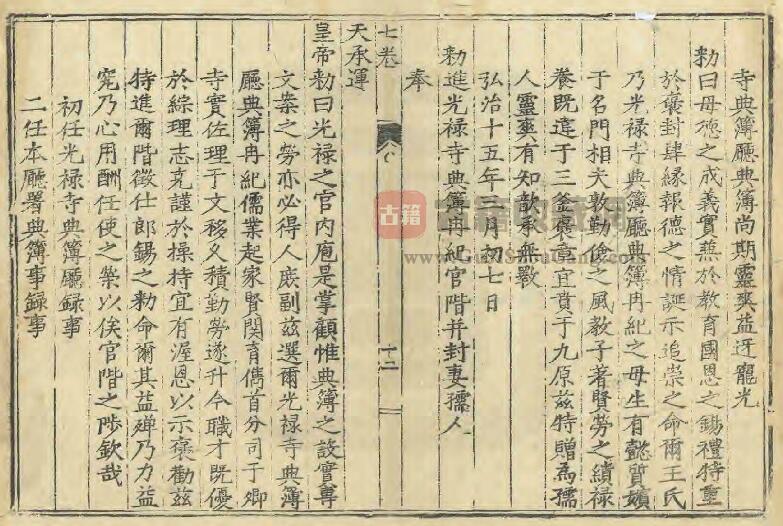 寺典簿廳典簿尚期靈爽益迓寵光
勑曰母德之成義實兼於教育國恩之錫禮特重
於褒封肆緣報德之情誕示追崇之命爾王氏
乃光禄寺典簿廳典簿冉紀之母生有懿質嬪
于名門相夫敦勤儉之風教子著賢勞之績禄
養既違于三釜褒章宜賁于九原兹特贈為孺
人靈爽有知歆承無斁
弘治十五年二月初七日
勑進光禄寺典簿冉紀官階并封妻孺人
奉
七卷
十二
天承運
皇帝勑曰光禄之官内庖是掌顧惟典簿之設實專
文案之勞亦必得人庶副兹選爾光禄寺典簿
廳典簿冉紀儒業起家賢関育儁首分司于卿
寺實佐理于文移乆積勤勞遂升今職才既優
於綜理志克謹於操持宜有渥恩以示褒勸兹
特進爾階徵仕郎錫之勑命爾其益殫乃力益
究乃心用酬任使之榮以俟官階之陟欽哉
初任光禄寺典簿廳録事
二任本廳署典簿事録事
古籍
www.GujiShuGang.com